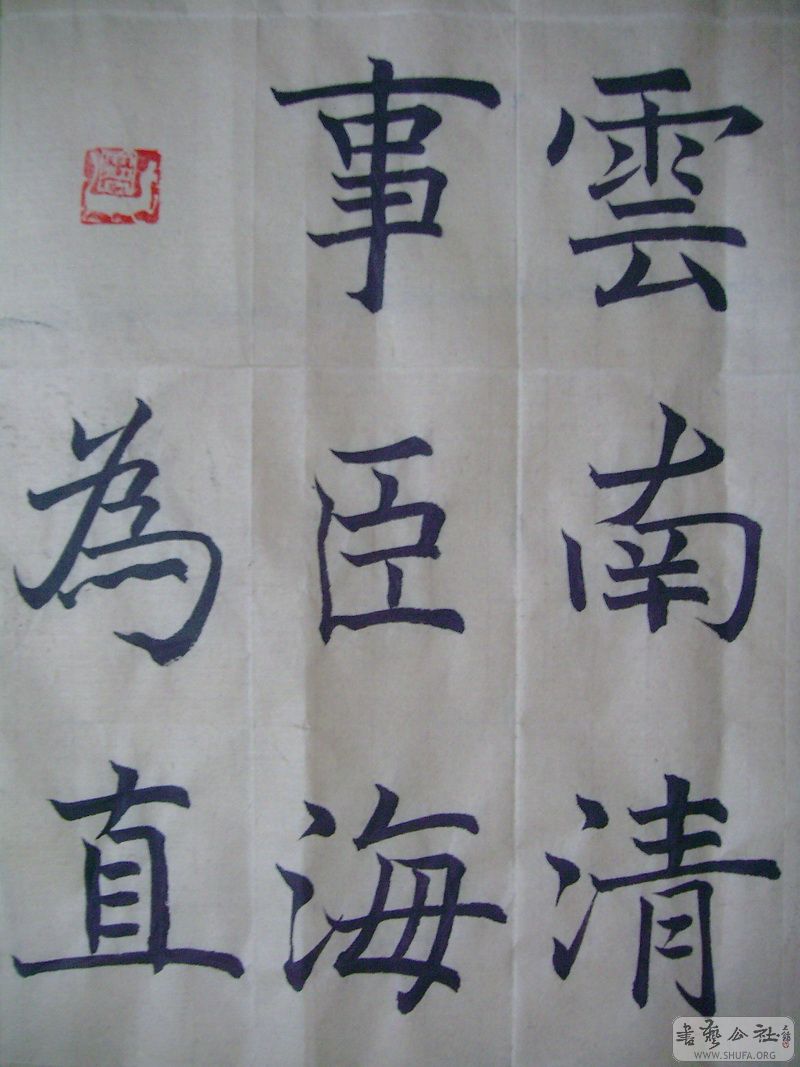 雲南清
事臣海
為直
書藝公社
WWW.SHUFA.ORG